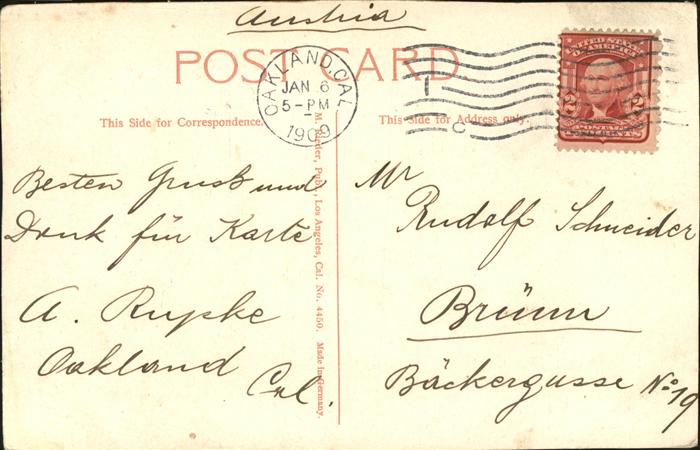 Austria
POST CARD.
OAKLAND, CAL.
JAN 6
5-PM
1909
UNITED STATES
OF AMERICA
2 2
This Side for Correspondence.
This Side for Address only.
M. Rieder, Publ., Los Angeles, Cal. No. 4450. Made in Germany.
Besten Gruss und
Dank für Karte
A. Rupke
Oakland
Cal.
Mr
Rudolf Schneider
Brünn
Bäckergasse No 19